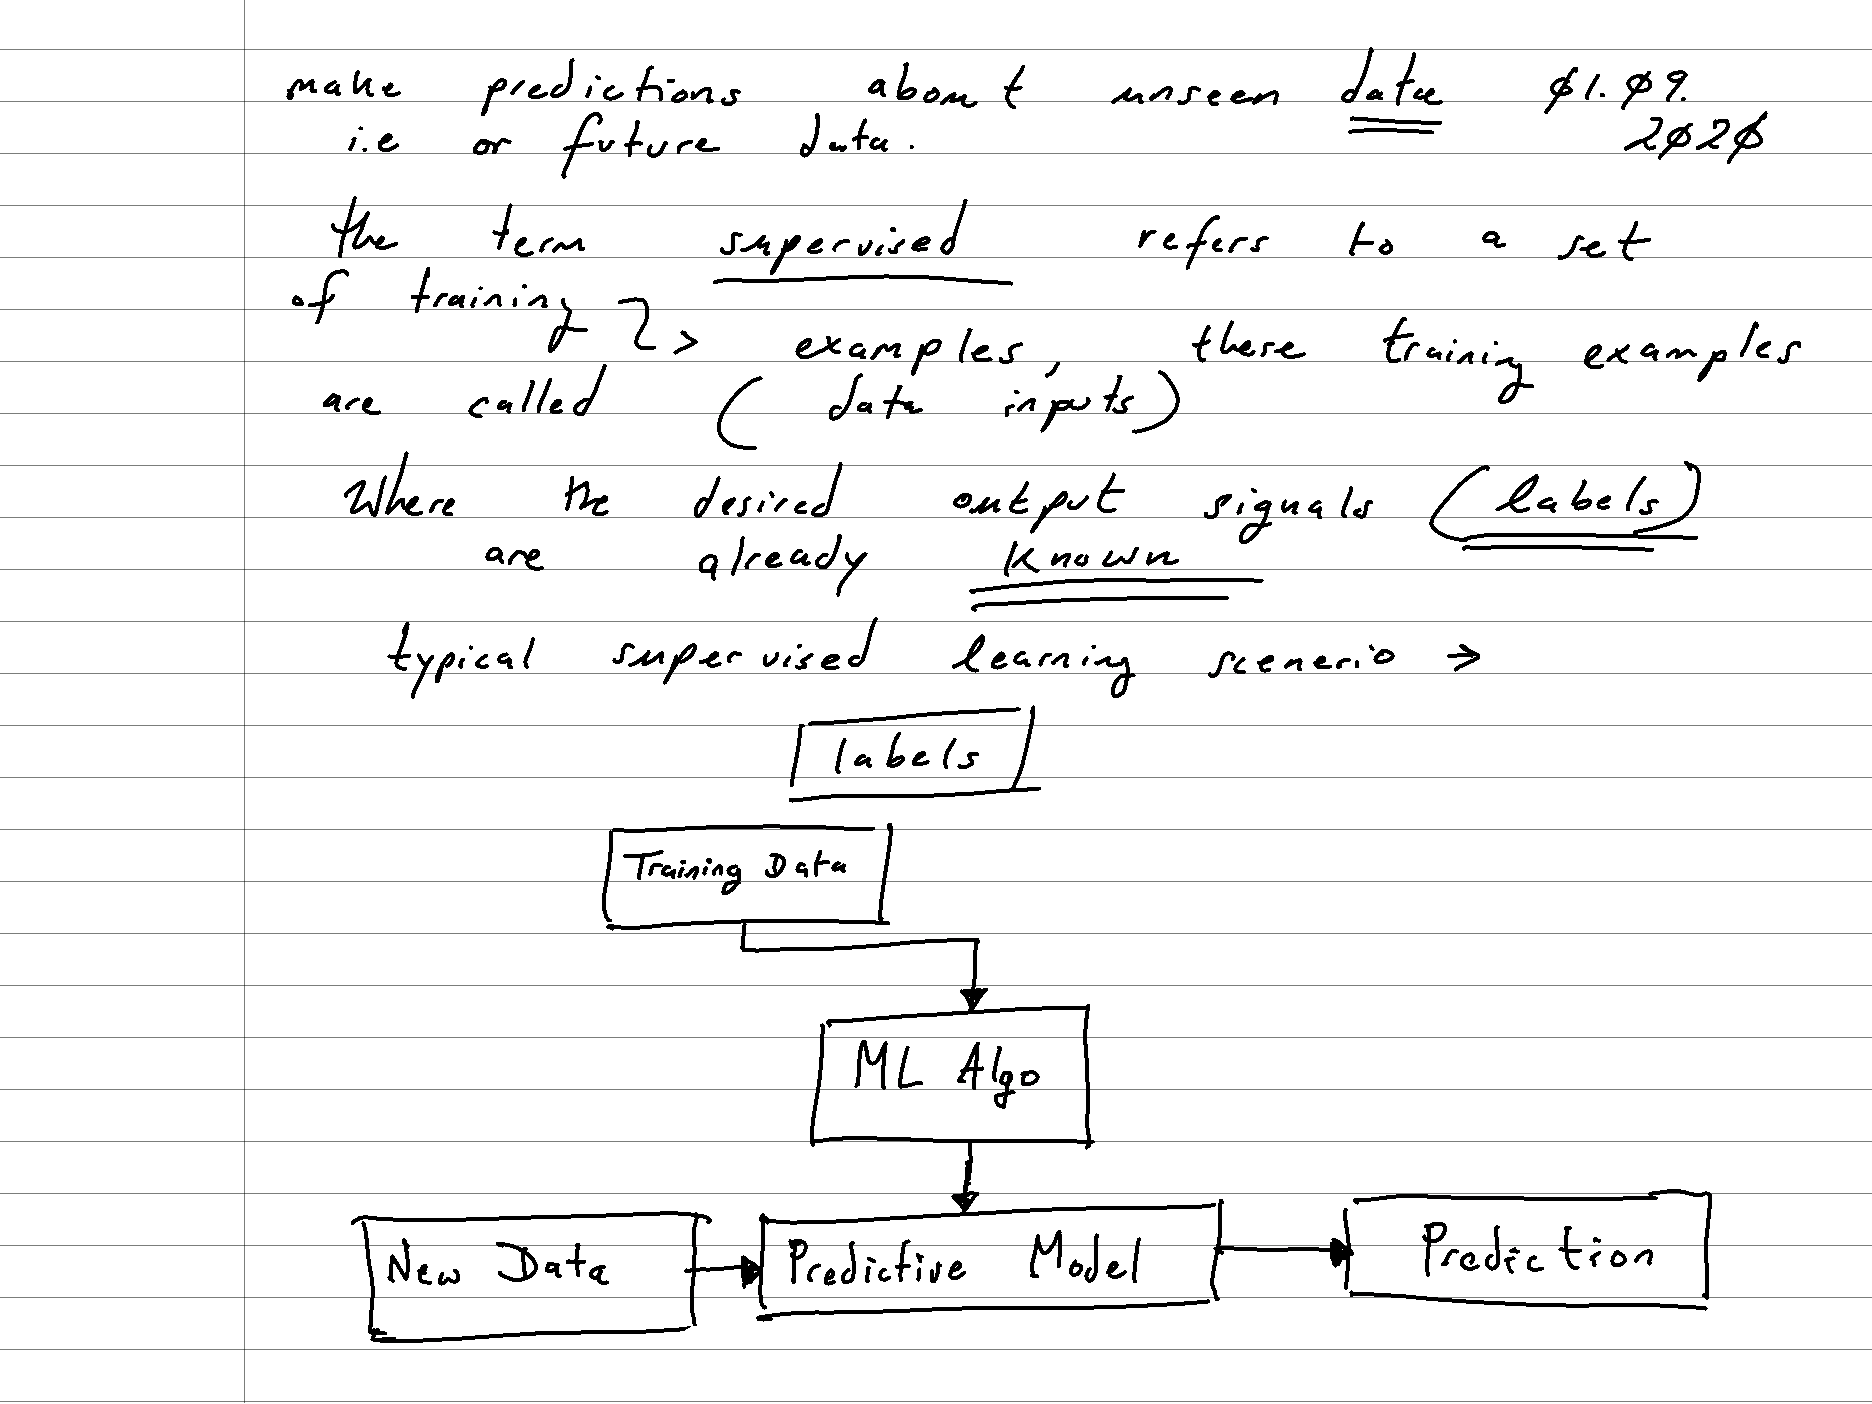 make predictions about unseen data Ø1.Ø9.
i.e or future data. 2Ø2Ø
the term supervised refers to a set
of training
> examples, these training examples
are called (data inputs)
Where the desired output signals (labels)
are already known
typical supervised learning scenerio →
labels
Training Data
ML Algo
New Data Predictive Model Prediction